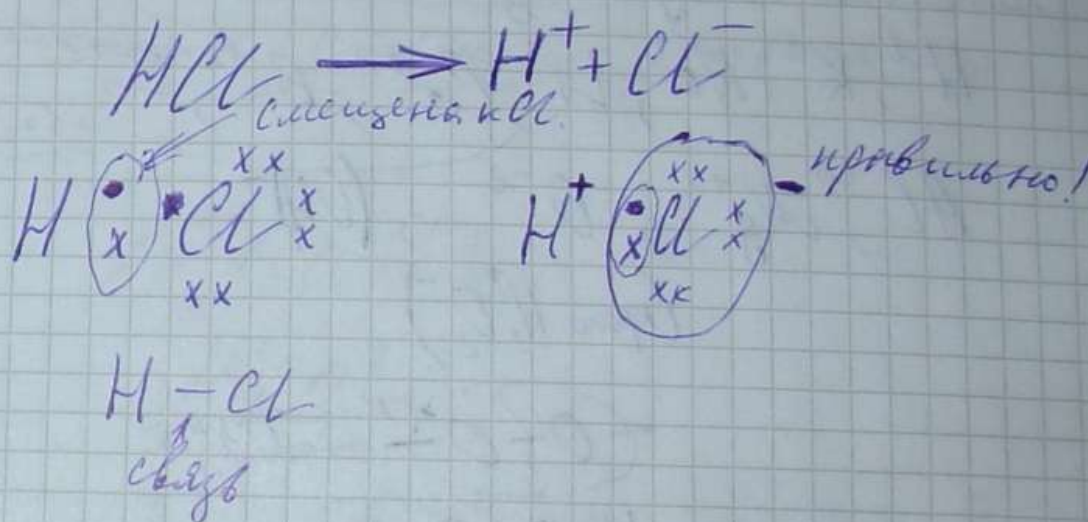 HCl → H⁺ + Cl⁻
смещена к Cl.
H • x Cl xx xx xx
H⁺ • x Cl xx xx xx − правильно!
H − Cl
связь